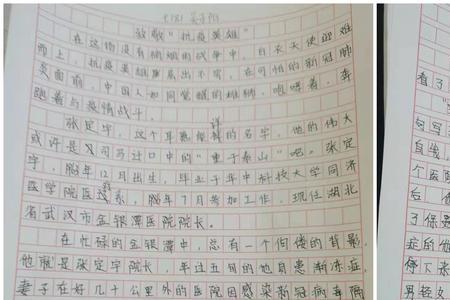 致敬"抗疫英雄"
在这场没有硝烟的战争中，白衣天使迎难
而上，抗疫英雄屡屡出不穷，在可怕的新冠肺
炎面前，中国人如同觉醒的雄狮，咆哮着，奔
跑着与疫情战斗。
张定宇，这个耳熟能详的名字，他的伟大
或许是司马迁口中的"重于泰山"吧。张定
宇，12月出生，毕业于华中科技大学同济
医学院医疗系，年7月参加工作，现任湖北
省武汉市金银潭医院院长。
在忙碌的金银潭中，总有一个佝偻的背影，
他就是张定宇院长，年过五旬的他身患渐冻症，
妻子在好几十公里外的医院因感染新冠病毒隔
看了
句写
个医
后
了保
症的他
停下来
男轻女